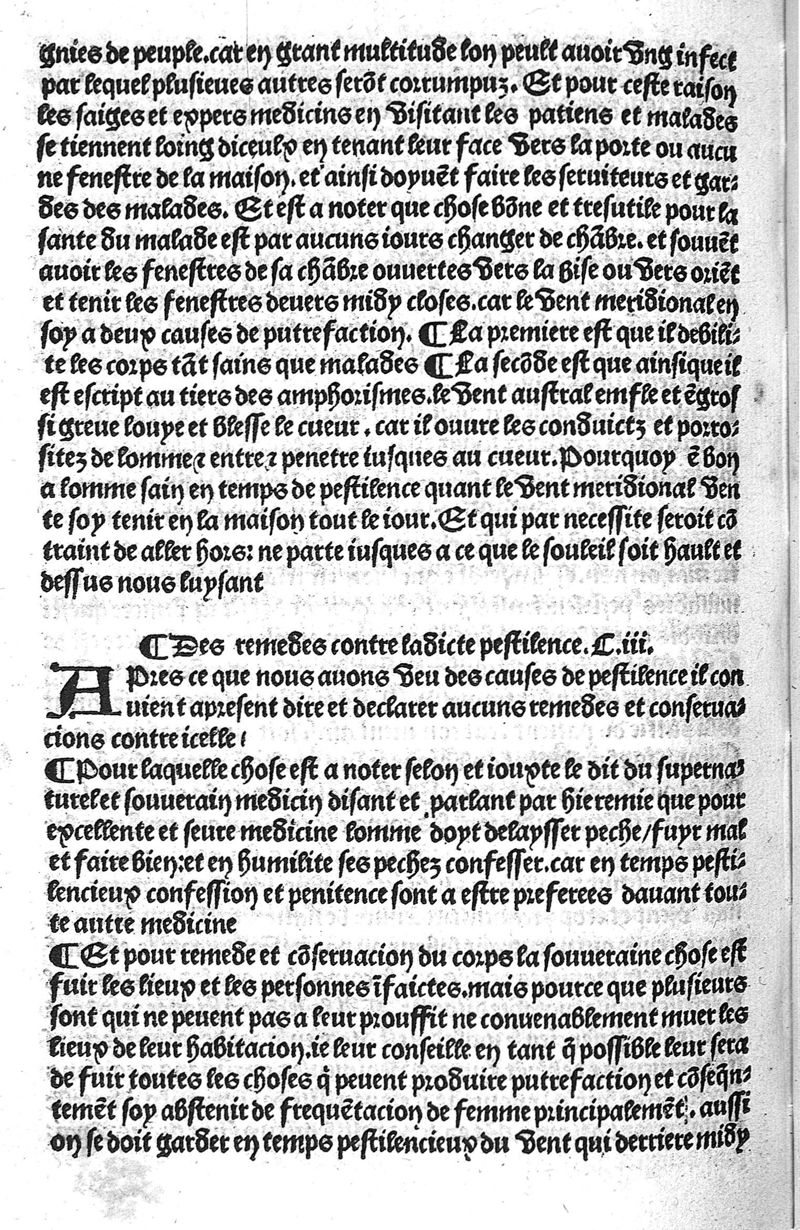 gnies de peuple.car en grant multitude lon peult auoir vng infect
par lequel plusieues autres serõt corrumpuz. Et pour ceste raison
les saiges et expers medicins en visitant les patiens et malades
se tiennent loing diceulx en tenant leur face vers la porte ou aucu
ne fenestre de la maison. et ainsi doyuẽt faire les seruiteurs et gar⸗
des des malades. Et est a noter que chose bõne et tresutile pour la
sante du malade est par aucuns iours changer de chãbre. et souuẽt
auoir les fenestres de sa chãbre ouuertes vers la bise ou vers oriẽt
et tenir les fenestres deuers midy closes.car le vent meridional en
soy a deux causes de putrefaction. ¶ La premiere est que il debili⸗
te les corps tãt sains que malades ¶ La secõde est que ainsique il
est escript au tiers des amphorismes.le vent austral emfle et ẽgros
si greue louye et blesse le cueur . car il ouure les conduictz et porro⸗
sitez de lomme⁊ entre⁊ penetre iusques au cueur. Pourquoy ẽ bon
a lomme sain en temps de pestilence quant le vent meridional ven
te soy tenir en la maison tout le iour. Et qui par necessite seroit cõ
traint de aller hors: ne parte iusques a ce que le souleil soit hault et
dessus nous luysant
¶ Des remedes contre ladicte pestilence. C.iii.
APres ce que nous auons veu des causes de pestilence il con
uient apresent dire et declarer aucuns remedes et conserua⸗
cions contre icelle /
¶ Pour laquelle chose est a noter selon et iouxte le dit du superna⸗
turel et souuerain medicin disant et parlant par hieremie que pour
excellente et seure medicine lomme doyt delaysser peche/fuyr mal
et faire bien:et en humilite ses pechez confesser.car en temps pesti⸗
lencieux confession et penitence sont a estre preferees dauant tou⸗
te autre medicine
¶ Et pour remede et cõseruacion du corps la souueraine chose est
fuir les lieux et les personnes ĩfaictes.mais pource que plusieurs
sont qui ne peuent pas a leur prouffit ne conuenablement muer les
lieux de leur habitacion.ie leur conseille en tant q̃ possible leur sera
de fuir toutes les choses q̃ peuent produire putrefaction et cõseq̃n⸗
temẽt soy abstenir de frequẽtacion de femme principalemẽt . aussi
on se doit garder en temps pestilencieux du vent qui derriere midy